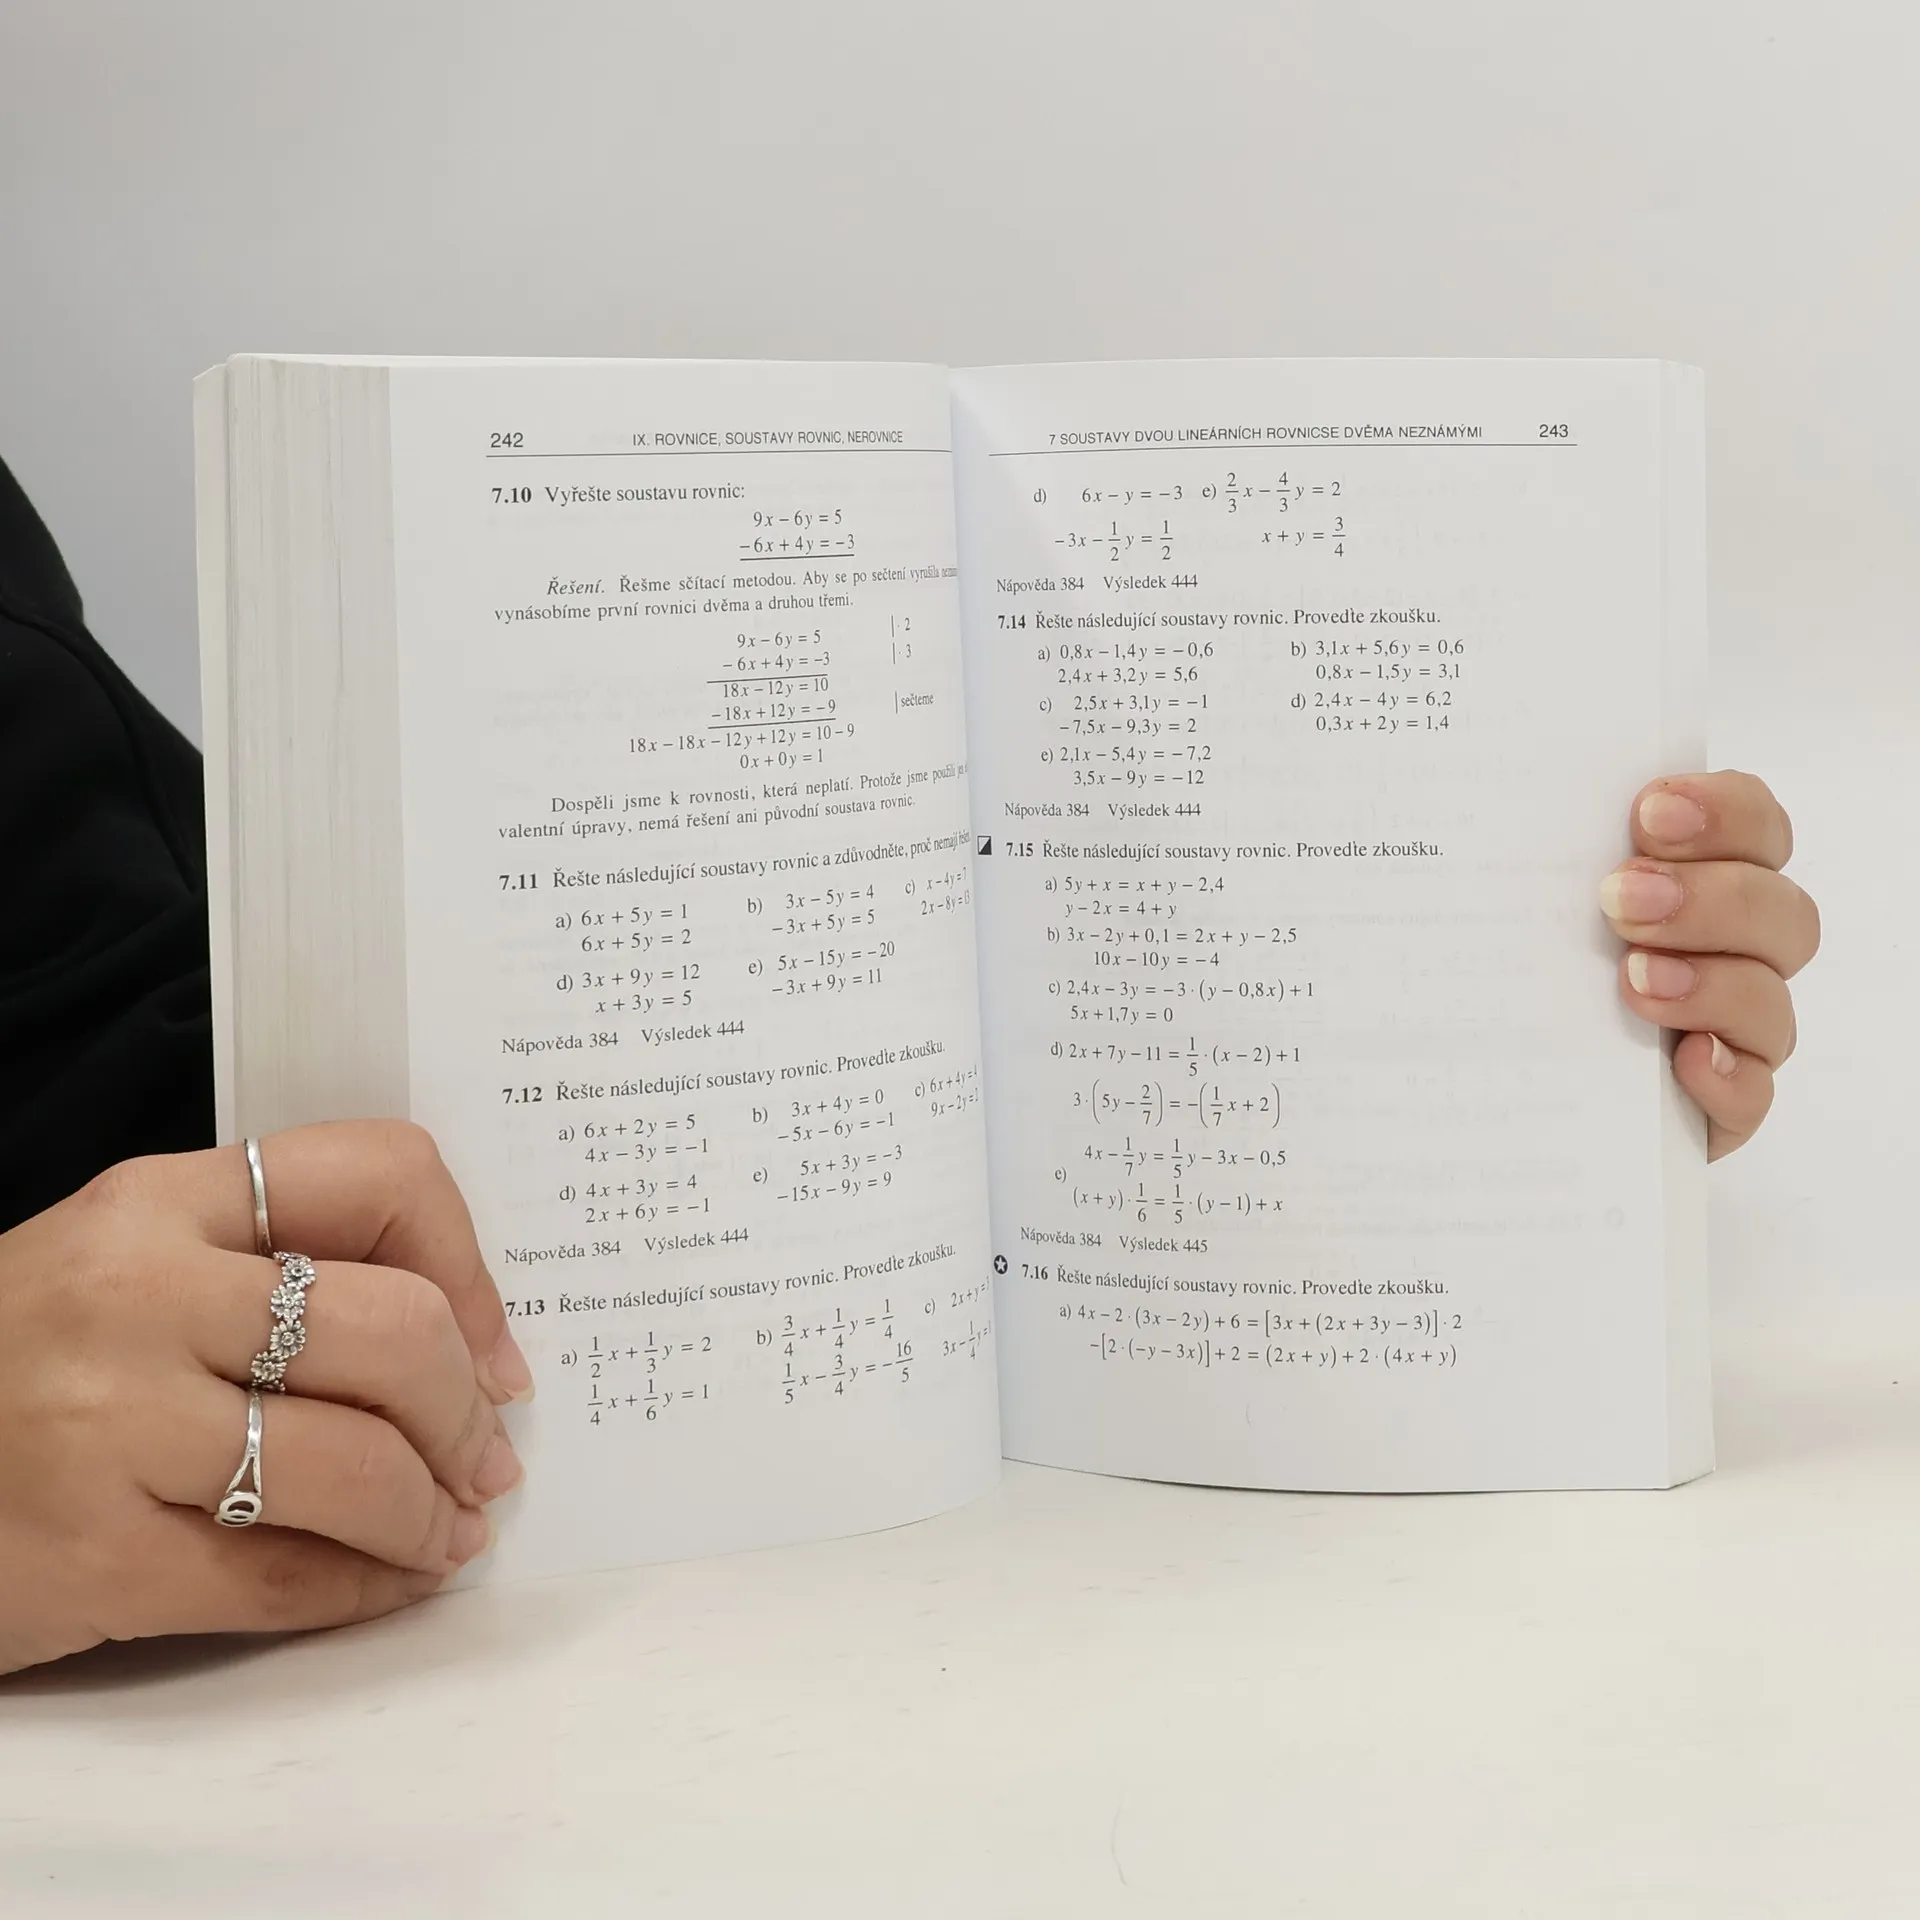 242 IX. ROVNICE, SOUSTAVY ROVNIC, NEROVNICE
7.10 Vyřešte soustavu rovnic:
9x – 6y = 5
– 6x + 4y = – 3
Řešení. Řešme sčítací metodou. Aby se po sečtení vyrušila
vynásobíme první rovnici dvěma a druhou třemi.
9x – 6y = 5 | · 2
– 6x + 4y = –3 | · 3
18x – 12y = 10
– 18x + 12y = – 9 | sečteme
18x – 18x – 12y + 12y = 10 – 9
0x + 0y = 1
Dospěli jsme k rovnosti, která neplatí. Protože jsme použili
valentní úpravy, nemá řešení ani původní soustava rovnic.
7.11 Řešte následující soustavy rovnic a zdůvodněte, proč nemají
a) 6x + 5y = 1 b) 3x – 5y = 4 c) x – 4y = 7
6x + 5y = 2 – 3x + 5y = 5 2x – 8y = 13
d) 3x + 9y = 12 e) 5x – 15y = – 20
x + 3y = 5 – 3x + 9y = 11
Nápověda 384 Výsledek 444
7.12 Řešte následující soustavy rovnic. Proveďte zkoušku.
a) 6x + 2y = 5 b) 3x + 4y = 0 c) 6x + 4y = 4
4x – 3y = –1 – 5x – 6y = –1 9x – 2y = 2
d) 4x + 3y = 4 e) 5x + 3y = –3
2x + 6y = –1 – 15x – 9y = 9
Nápověda 384 Výsledek 444
7.13 Řešte následující soustavy rovnic. Proveďte zkoušku.
a) 1/2 x + 1/3 y = 2 b) 3/4 x + 1/4 y = 1/4 c) 2x + y =
1/4 x + 1/6 y = 1 1/5 x – 3/4 y = – 16/5 3x – 1/4 y =
7 SOUSTAVY DVOU LINEÁRNÍCH ROVNICSE DVĚMA NEZNÁMÝMI 243
d) 6x – y = – 3 e) 2/3 x – 4/3 y = 2
– 3x – 1/2 y = 1/2 x + y = 3/4
Nápověda 384 Výsledek 444
7.14 Řešte následující soustavy rovnic. Proveďte zkoušku.
a) 0,8x – 1,4y = – 0,6 b) 3,1x + 5,6y = 0,6
2,4x + 3,2y = 5,6 0,8x – 1,5y = 3,1
c) 2,5x + 3,1y = –1 d) 2,4x – 4y = 6,2
– 7,5x – 9,3y = 2 0,3x + 2y = 1,4
e) 2,1x – 5,4y = – 7,2
3,5x – 9y = – 12
Nápověda 384 Výsledek 444
7.15 Řešte následující soustavy rovnic. Proveďte zkoušku.
a) 5y + x = x + y – 2,4
y – 2x = 4 + y
b) 3x – 2y + 0,1 = 2x + y – 2,5
10x – 10y = – 4
c) 2,4x – 3y = – 3 · (y – 0,8x) + 1
5x + 1,7y = 0
d) 2x + 7y – 11 = 1/5 · (x – 2) + 1
3 · (5y – 2/7) = –(1/7 x + 2)
4x – 1/7 y = 1/5 y – 3x – 0,5
e)
(x + y) · 1/6 = 1/5 · (y – 1) + x
Nápověda 384 Výsledek 445
7.16 Řešte následující soustavy rovnic. Proveďte zkoušku.
a) 4x – 2 · (3x – 2y) + 6 = [3x + (2x + 3y – 3)] · 2
–[2 · (–y – 3x)] + 2 = (2x + y) + 2 · (4x + y)